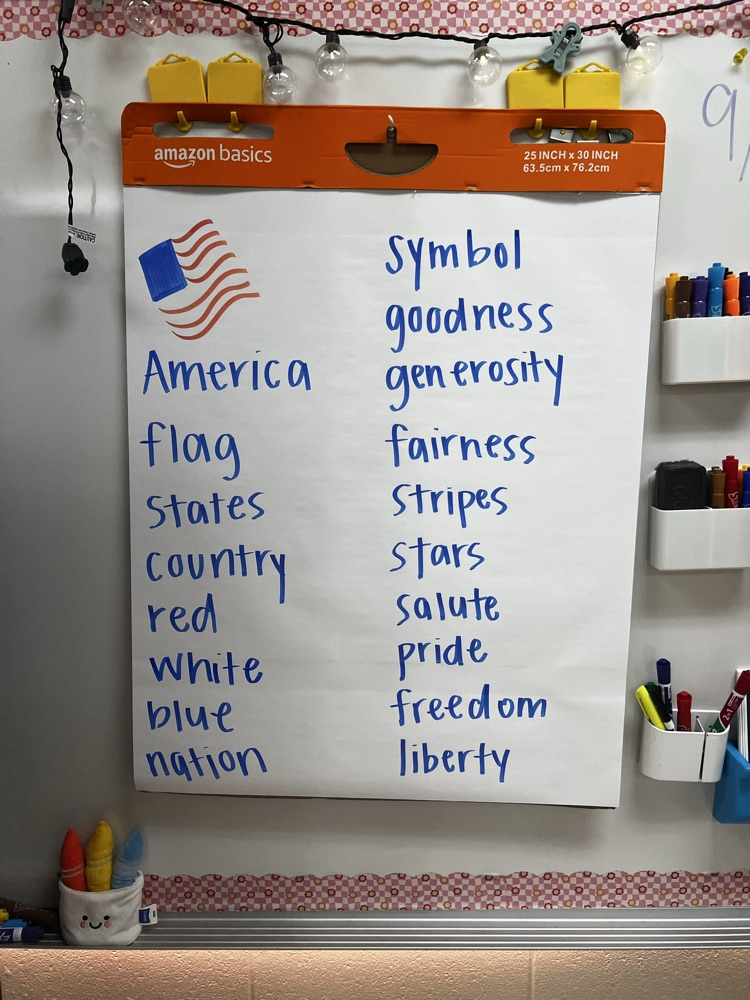 amazon basics
25 INCH x 30 INCH
63.5cm x 76.2cm
America
flag
states
country
red
white
blue
nation
symbol
goodness
generosity
fairness
stripes
stars
salute
pride
freedom
liberty
9/
CAUTION